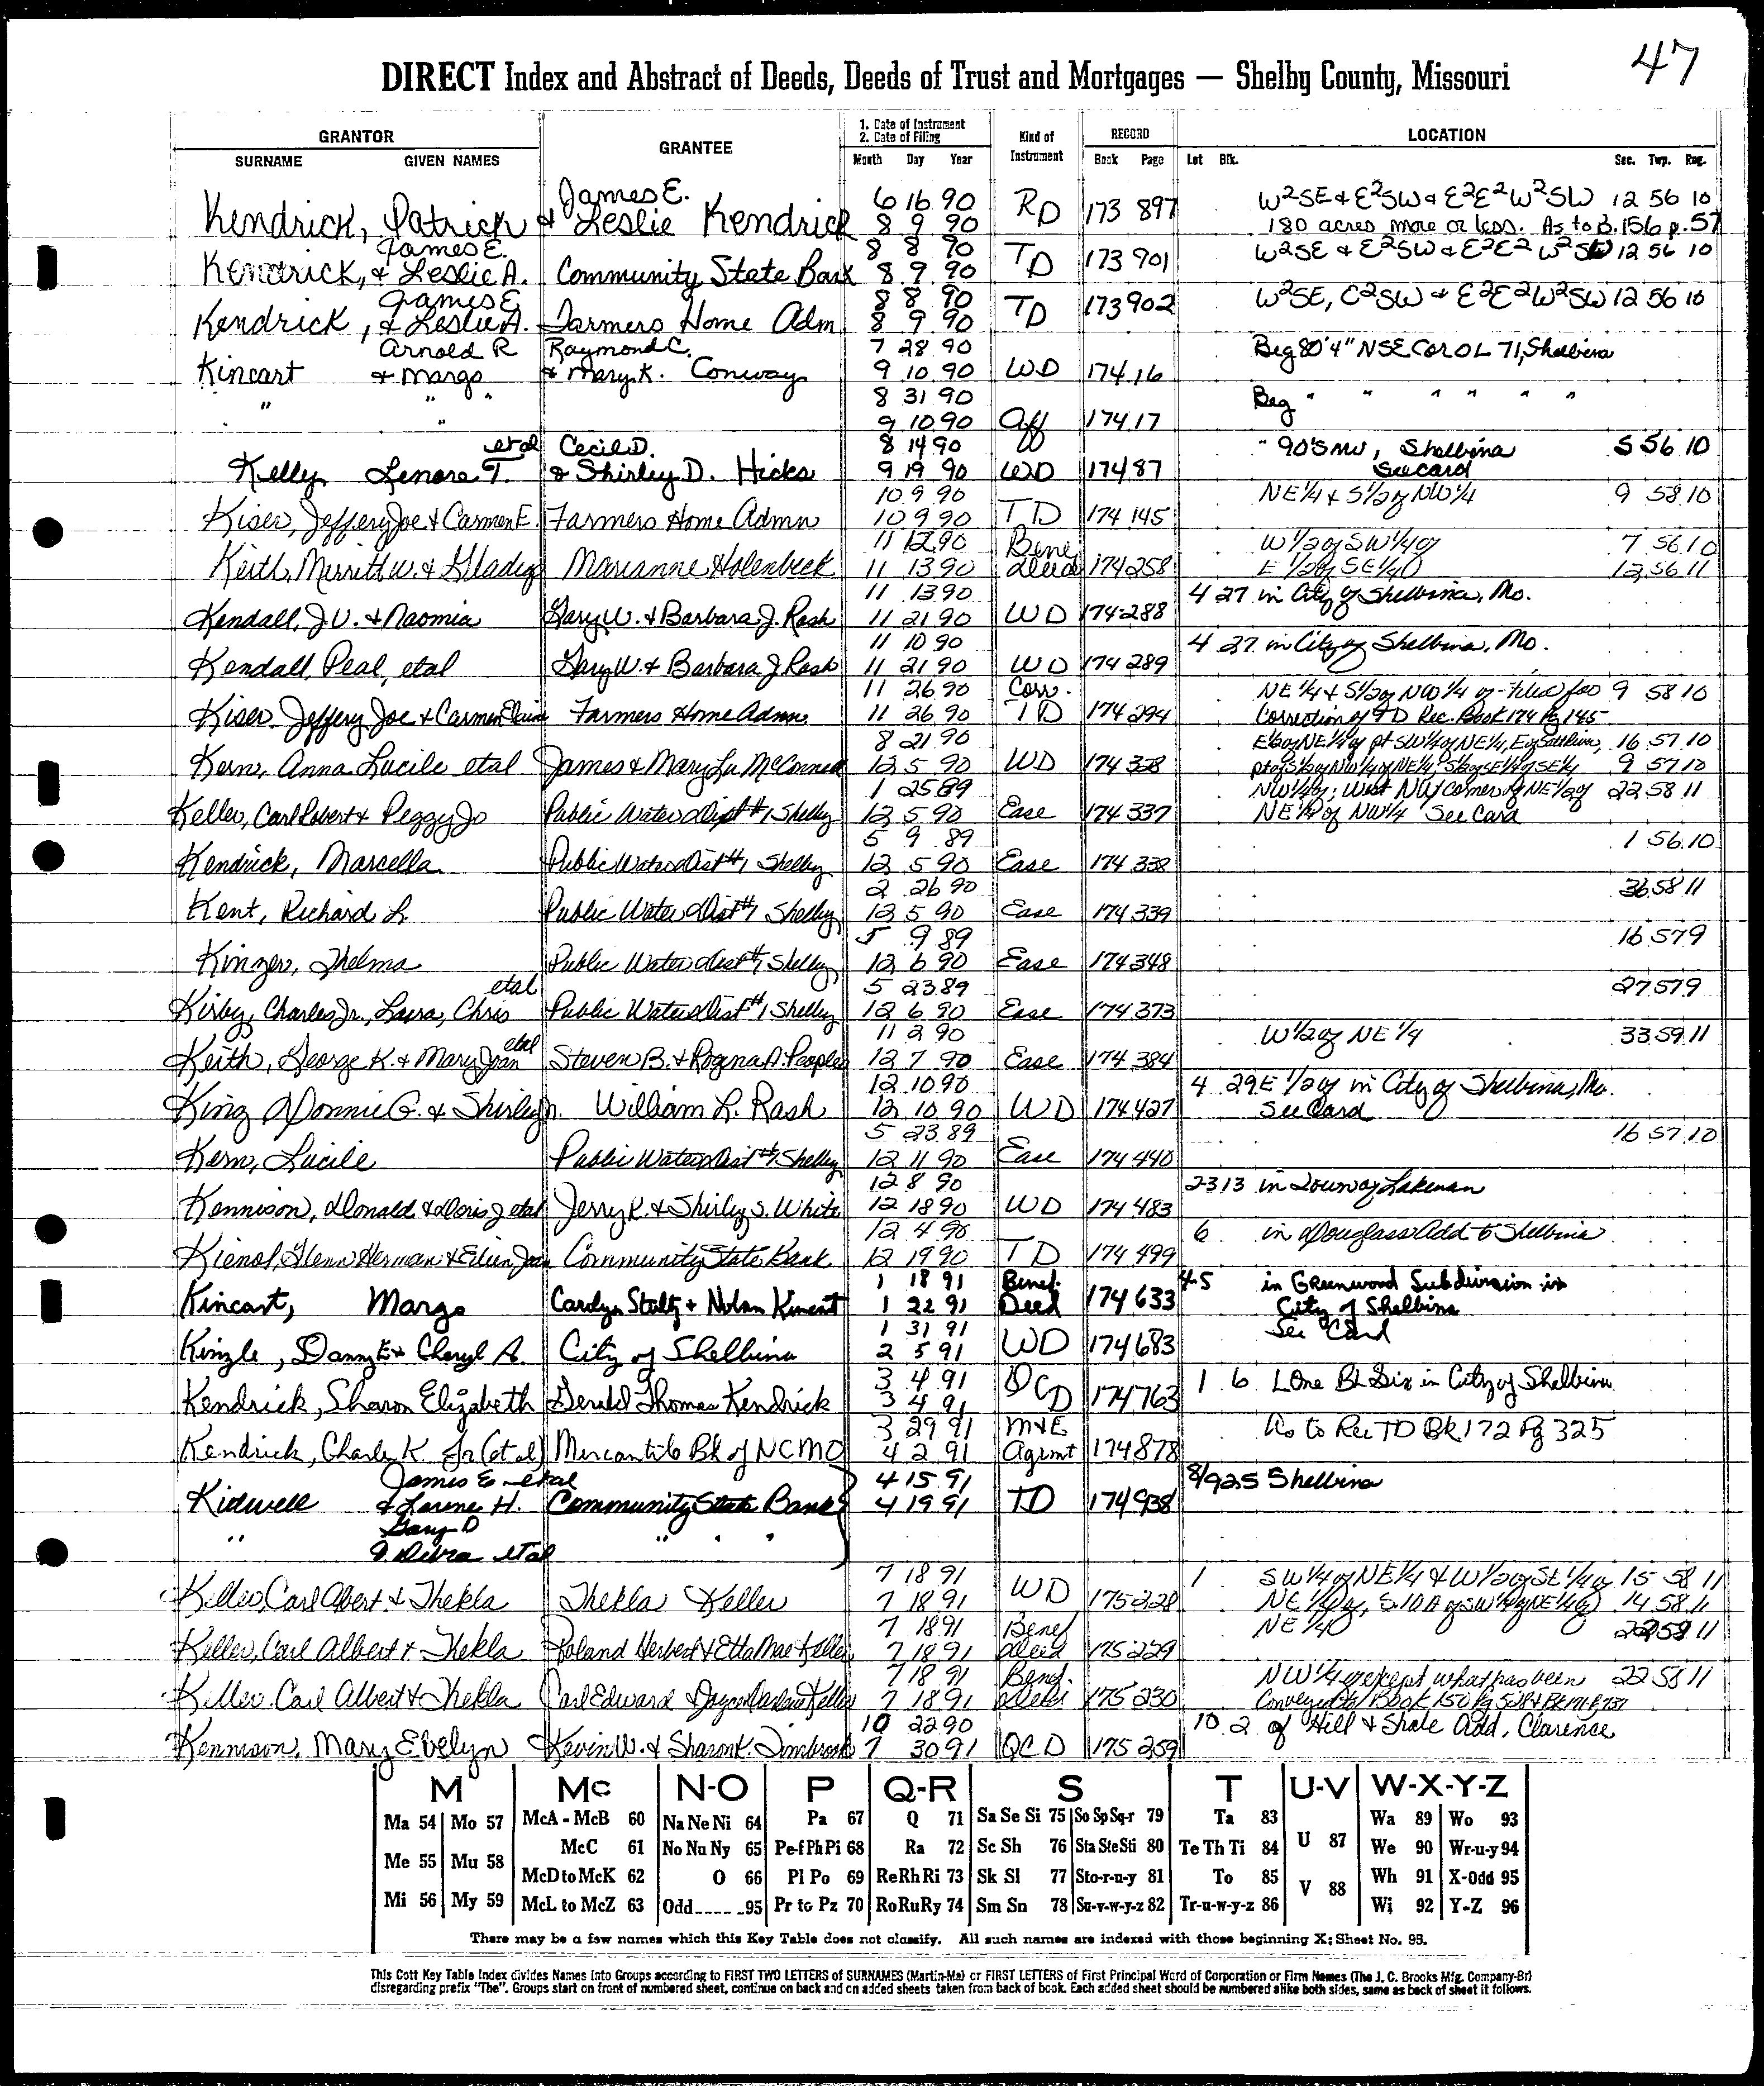 47
DIRECT Index and Abstract of Deeds, Deeds of Trust and Mortgages — Shelby County, Missouri
GRANTOR GRANTEE 1. Date of Instrument 2. Date of Filing Kind of Instrument RECORD LOCATION
SURNAME GIVEN NAMES Month Day Year Book Page Lot Blk. Sec. Twp. Rng.
James E. 6 16 90 W²SE & E²SW & E²E²W²SW 12 56 10
Kendrick, Patrick & Leslie Kendrick 8 9 90 RD 173 897 180 acres more or less. As to B.156 p.57
James E. 8 8 90 W²SE & E²SW & E²E² W²SW 12 56 10
Kendrick, & Leslie A. Community State Bank 8 9 90 TD 173 901
James E 8 8 90 W²SE, E²SW & E²E²W²SW 12 56 10
Kendrick, & Leslie A. Farmers Home Adm 8 9 90 TD 173 902
Arnold R Raymond C. 7 28 90 Beg 80'4" N SE Cor OL 71, Shelbina
Kincart & Margo & Mary K. Conway 9 10 90 WD 174 16
" " " 8 31 90 Beg " " " " " "
9 10 90 Aff 174 17
etal Cecil D. 8 14 90 " 90'S NW, Shelbina 5 56 10
Kelly Lenore T. & Shirley D. Hicks 9 19 90 WD 174 87 See card
10 9 90 NE 1/4 & S 1/2 of NW 1/4 9 58 10
Kiser, Jeffery Joe & Carmen E. Farmers Home Admn 10 9 90 TD 174 145
11 12 90 Bene W 1/2 of SW 1/4 of 7 56 10
Keith, Merrett W. & Gladys Marianne Holenbeck 11 13 90 Deed 174 258 E 1/2 of SE 1/4 12 56 11
11 13 90 4 27 in City of Shelbina, Mo.
Kendall, J.V. & Naomia Gary W. & Barbara J. Rash 11 21 90 WD 174 288
11 10 90 4 27 in City of Shelbina, Mo.
Kendall, Peal, etal Gary W. & Barbara J Rash 11 21 90 WD 174 289
11 26 90 Corr. NE 1/4 & S 1/2 of NW 1/4 of - Filed for 9 58 10
Kiser Jeffery Joe & Carmen Elaine Farmers Home Admn 11 26 90 TD 174 294 Correction of TD Rec. Book 174 Pg 145
8 21 90 pt SW 1/4 of NE 1/4, 16 57 10
Kern, Anna Lucile etal James & Mary Lu McConnell 12 5 90 WD 174 328 9 57 10
1 25 89 NW 1/4 of; West NW corner of NE 1/2 of 22 58 11
Keller, Carl Robert & Peggy Jo Public Water Dist #1, Shelby 12 5 90 Ease 174 337 NE 1/4 of NW 1/4 See Card
5 9 89 1 56 10
Kendrick, Marcella Public Water Dist #1 Shelby 12 5 90 Ease 174 338
2 26 90 36 58 11
Kent, Richard L. Public Water Dist #1 Shelby 12 5 90 Ease 174 339
5 9 89 16 57 9
Kinzer, Thelma Public Water Dist #1, Shelby 12 6 90 Ease 174 348
etal 5 23 89 27 57 9
Kirby, Charles Jr., Laura, Chris Public Water Dist #1 Shelby 12 6 90 Ease 174 373
etal 11 2 90 W 1/2 of NE 1/4 33 59 11
Keith, George K. & Mary Joan Steven B. & Rogena A. Peoples 12 7 90 Ease 174 384
12 10 90 4 29 E 1/2 of in City of Shelbina, Mo.
King Donnie G. & Shirley William L. Rash 12 10 90 WD 174 427 See Card
5 23 89 16 57 10
Kern, Lucile Public Water Dist #1, Shelby 12 11 90 Ease 174 440
12 8 90 2-3 13 in Town of Lakenan
Kennison, Donald & Doris J etal Jerry R. & Shirley S. White 12 18 90 WD 174 483
12 4 90 6 in Douglass Add to Shelbina
Glenn Herman & Community State Bank 12 19 90 TD 174 499
1 18 91 Benef. 4-5 in Greenwood Subdivision in
Kincart, Margo Carolyn Stultz & Nolan Kincart 1 22 91 Deed 174 633 City of Shelbina
1 31 91 See Card
Kinzle, Danny E & Cheryl A. City of Shelbina 2 5 91 WD 174 683
3 4 91 1 6 L One Bl Six in City of Shelbina
Kendrick, Sharon Elizabeth Gerald Thomas Kendrick 3 4 91 QCD 174 763
3 29 91 M&E As to Rec TD Bk 172 Pg 325
Kendrick, Charles K Jr (et al) Mercantile Bk of NCMO 4 2 91 Agrmt 174 878
James E etal 4 15 91 8/9 25 Shelbina
Kidwell & Lorene H. Community State Bank 4 19 91 TD 174 938
Gary D
" & Debra etal " " "
7 18 91 1 SW 1/4 of NE 1/4 & W 1/2 of SE 1/4 of 15 58 11
Keller, Carl Albert & Thekla Thekla Keller 7 18 91 WD 175 228 NE 1/4 of, E. 10 A of SW 1/4 of NE 1/4 of 14 58 11
7 18 91 Benef NE 1/4 22 58 11
Keller, Carl Albert & Thekla Roland Herbert & Etta Mae Keller 7 18 91 Deed 175 229
7 18 91 Benef. NW 1/4 of except what has been 22 58 11
Keller Carl Albert & Thekla Carl Edward & Joyce Keller 7 18 91 Deed 175 230
10 22 90 10 2 of Hill & Shale Add, Clarence
Kennison, Mary Evelyn Kevin W. & Sharon K. Timbrook 7 30 91 QCD 175 259
M Mc N-O P Q-R S T U-V W-X-Y-Z
Ma 54 Mo 57 McA - McB 60 Na Ne Ni 64 Pa 67 Q 71 Sa Se Si 75 So Sp Sq-r 79 Ta 83 Wa 89 Wo 93
McC 61 No Nu Ny 65 Pe-f Ph Pi 68 Ra 72 Sc Sh 76 Sta Ste Sti 80 Te Th Ti 84 U 87 We 90 Wr-u-y 94
Me 55 Mu 58 McD to McK 62 O 66 Pl Po 69 Re Rh Ri 73 Sk Sl 77 Sto-r-u-y 81 To 85 V 88 Wh 91 X-Odd 95
Mi 56 My 59 McL to McZ 63 Odd 95 Pr to Pz 70 Ro Ru Ry 74 Sm Sn 78 Su-v-w-y-z 82 Tr-u-w-y-z 86 Wi 92 Y-Z 96
There may be a few names which this Key Table does not classify. All such names are indexed with those beginning X; Sheet No. 95.
This Cott Key Table Index divides Names into Groups according to FIRST TWO LETTERS of SURNAMES (Martin-Ma) or FIRST LETTERS of First Principal Word of Corporation or Firm Names (The J. C. Brooks Mfg. Company-Br)
disregarding prefix "The". Groups start on front of numbered sheet, continue on back and on added sheets taken from back of book. Each added sheet should be numbered alike both sides, same as back of sheet it follows.